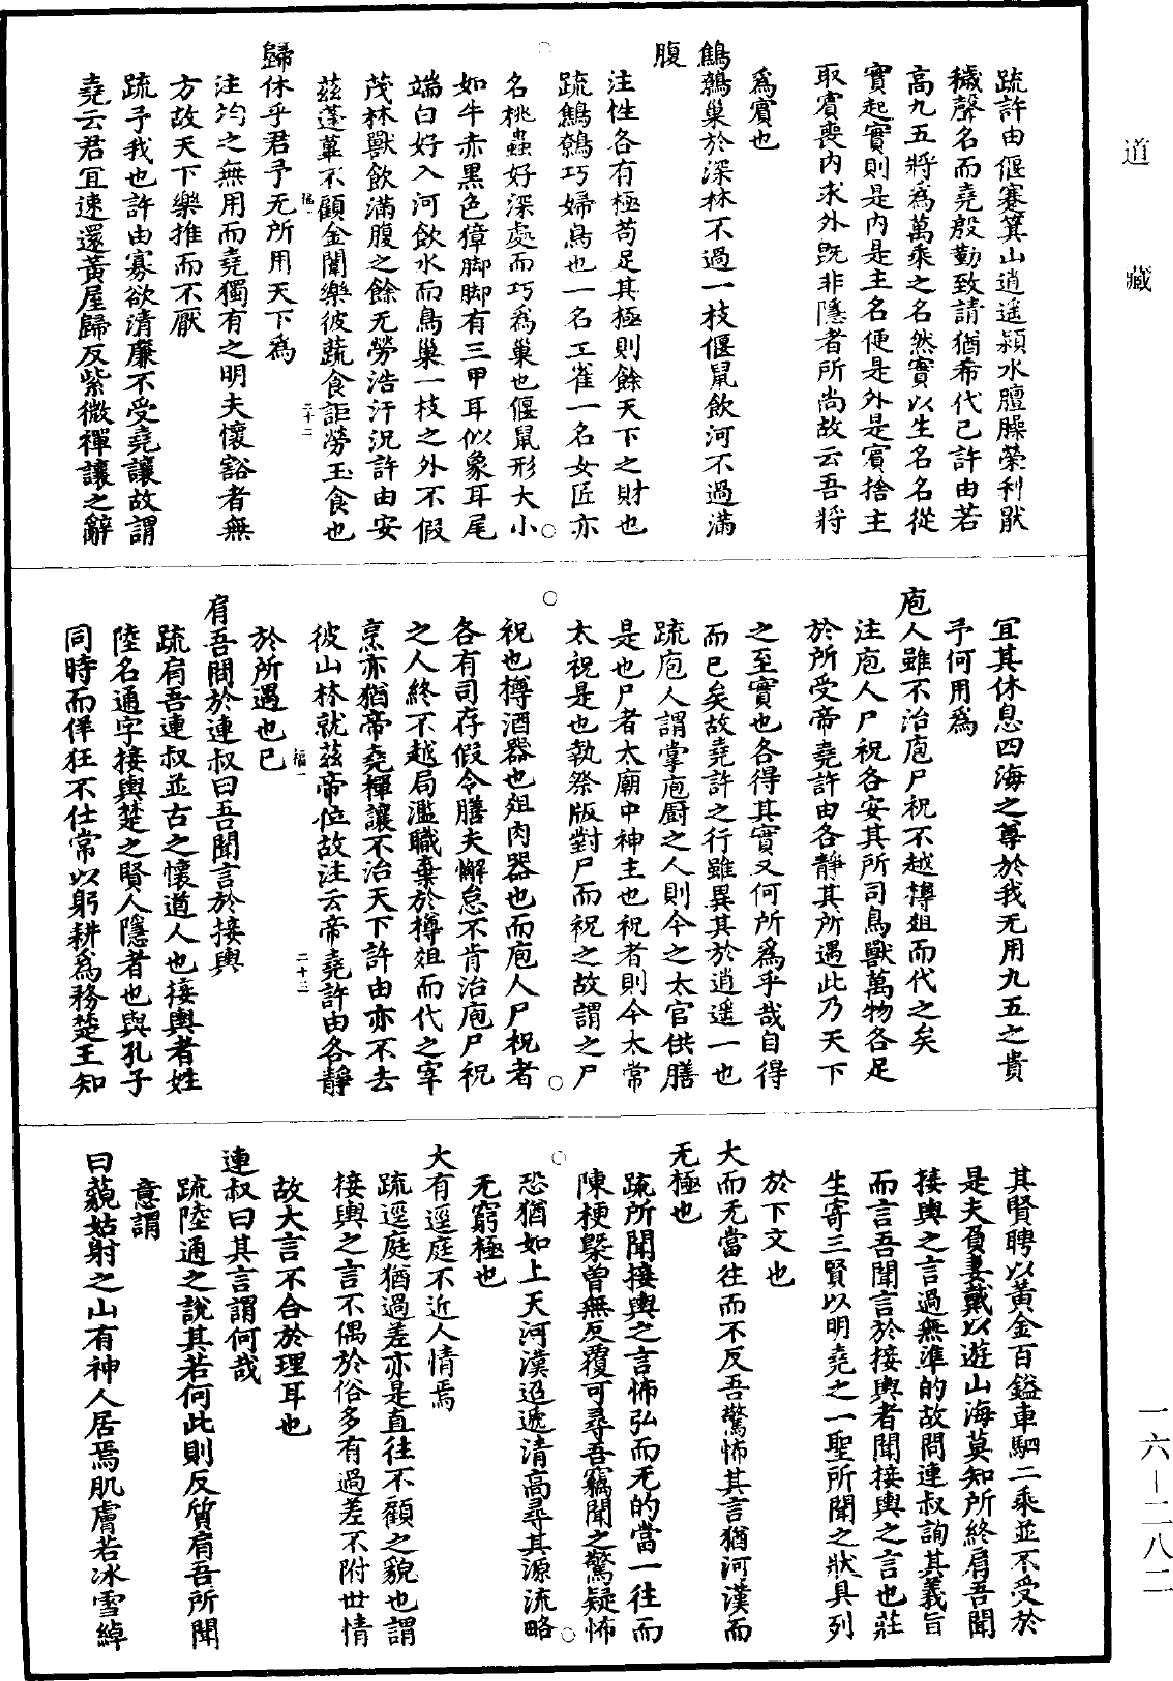 道藏
疏許由偃蹇箕山逍遥潁水膻臊榮利猒
穢聲名而堯殷勤致請猶希代已許由若
高九五將為萬乘之名然實以生名名從
實起實則是内是主名便是外是賓捨主
取賓喪内求外既非隱者所尚故云吾將
為賓也
鷦鷯巢於深林不過一枝偃鼠飲河不過滿
腹
注性各有極苟足其極則餘天下之財也
疏鷦鷯巧婦鳥也一名工雀一名女匠亦
名桃蟲好深處而巧為巢也偃鼠形大小
如牛赤黑色獐脚脚有三甲耳似象耳尾
端白好入河飲水而鳥巢一枝之外不假
茂林獸飲滿腹之餘无勞浩汗況許由安
茲蓬蓽不顧金闈樂彼蔬食詎勞玉食也
歸休乎君予无所用天下為
注均之無用而堯獨有之明夫懷豁者無
方故天下樂推而不厭
疏予我也許由寡欲清廉不受堯讓故謂
堯云君宜速還黃屋歸反紫微禪讓之辭
二十二
宜其休息四海之尊於我无用九五之貴
予何用為
庖人雖不治庖尸祝不越樽俎而代之矣
注庖人尸祝各安其所司鳥獸萬物各足
於所受帝堯許由各靜其所遇此乃天下
之至實也各得其實又何所為乎哉自得
而已矣故堯許之行雖異其於逍遥一也
疏庖人謂掌庖厨之人則今之太官供膳
是也尸者太廟中神主也祝者則今太常
太祝是也執祭版對尸而祝之故謂之尸
祝也樽酒器也俎肉器也而庖人尸祝者
各有司存假令膳夫懈怠不肯治庖尸祝
之人終不越局濫職棄於樽俎而代之宰
烹亦猶帝堯禪讓不治天下許由亦不去
彼山林就茲帝位故注云帝堯許由各靜
於所遇也已
福一
二十三
肩吾問於連叔曰吾聞言於接輿
疏肩吾連叔並古之懷道人也接輿者姓
陸名通字接輿楚之賢人隱者也與孔子
同時而佯狂不仕常以躬耕為務楚王知
其賢聘以黃金百鎰車駟二乘並不受於
是夫負妻戴以遊山海莫知所終肩吾聞
接輿之言過無準的故問連叔詢其義旨
而言吾聞言於接輿者聞接輿之言也莊
生寄三賢以明堯之一聖所聞之狀具列
於下文也
大而无當往而不反吾驚怖其言猶河漢而
无極也
疏所聞接輿之言怖弘而无的當一往而
陳梗槩曾無反覆可尋吾竊聞之驚疑怖
恐猶如上天河漢迢遞清高尋其源流略
无窮極也
大有逕庭不近人情焉
疏逕庭猶過差亦是直往不顧之貌也謂
接輿之言不偶於俗多有過差不附世情
故大言不合於理耳也
連叔曰其言謂何哉
疏陸通之說其若何此則反質肩吾所聞
意謂
曰藐姑射之山有神人居焉肌膚若冰雪綽
一六－二八二